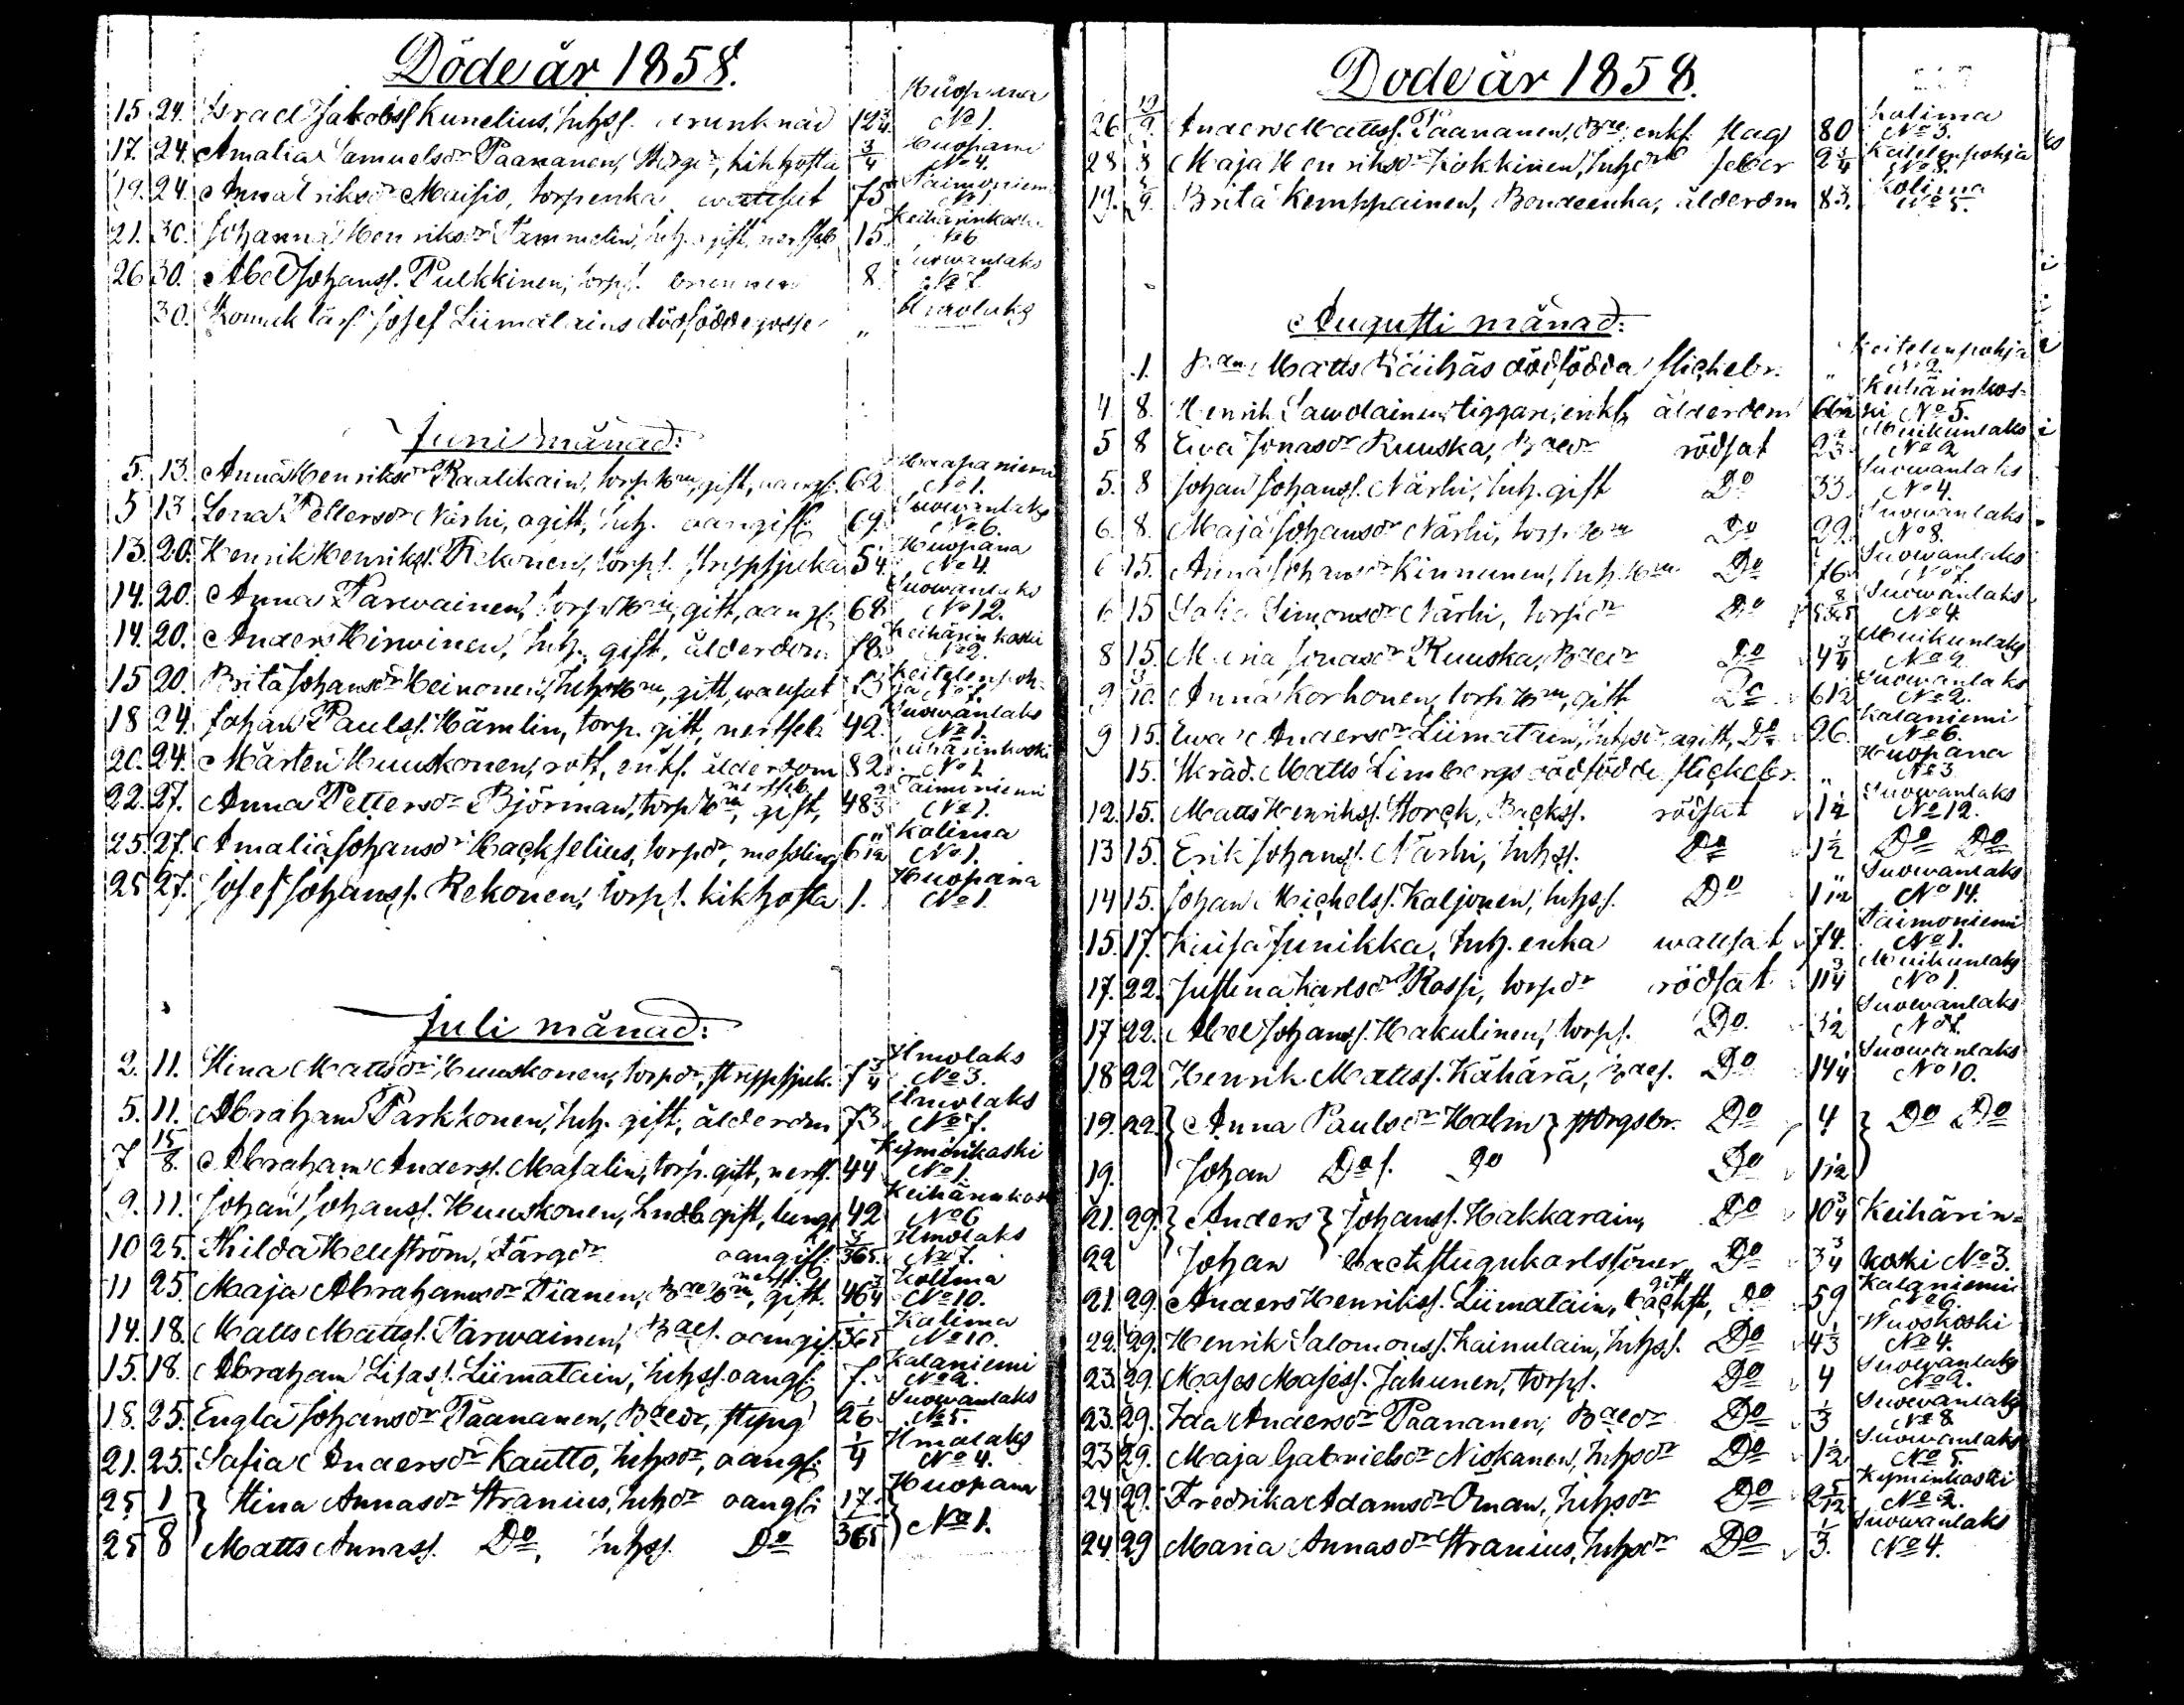 Döde år 1858.
15 24. Israel Jakobss. Kunelius, Inhss. drunknad 12 3/4 Huopana No 1.
17. 24. Amalia Samuelsdr Paananen, kikhosta 3/4 Huopana No 4.
19. 24. Anna Eriksdr Maisio, torpenka wattusot 75 Taimoniemi No 1.
21. 30. Johanna Henriksdr Tammelin, Inh. ogift, nerffeb 15 Keihärinkoski No 6
26 30. Abel Johanss. Pulkkinen, torps. 8 Suowanlaks No 7.
30. Josef Liimatains dödfödde gosse „ Ilmolaks
Juni månad:
5. 13. Anna Henriksdr Raatikain, torp. Hru, gift, oangif. 62 Haapaniemi No 1.
5 13 Lena Pettersdr Närhi, ogift, Inh. oangifl. 69. Suowanlaks No 6.
13. 20. Henrik Henrikss. Rekonen, torps. strypsjuka 5 1/4. Huopana No 4.
14. 20. Anna Parwainen, torp. Hru, gift, oangf. 68 Suowanlaks No 12.
14. 20. Anders Hirwinen, Inh. gift, ålderdom 78. Keihärinkoski No 2.
15 20. Brita Johansdr Heinonen, Inhs Hru, gift, wattusot Keitelenpohja No 7.
18 24. Johan Paulss. Hämlin, torp. gift, nerffeb 42. Suowanlaks No 1.
20. 24. Mårten Huuskonen, rotf, enkl. ålderdom 82. Keihärinkoski No 1.
22. 27. Anna Pettersdr Björman, torp Hru, gift, nerffeb. 48 2/3 Taimoniemi No 1.
25. 27. Amalia Johansdr Hackselius, torpdr, messling 6/12 Kolima No 1.
25 27. Josef Johanss. Rekonen, torps. kikhosta 1. Huopana No 1.
Juli månad:
2. 11. Stina Mattsdr Huuskonen, torpdr, strypsjuk. 7 3/4 Ilmolaks No 3.
5. 11. Abraham Parkkonen, Inh. gift, ålderdm 73. Ilmolaks No 7.
7 15/8. Abraham Anderss. Masalin, torp. gift, nerff. 44 Kyminkoski No 1.
9. 11. Johan Johanss. Huuskonen, Lndb. gift, lungs 42 Keihärinkosk No 6
10 25. Hilda Hellström, Färgdr oangifl. 3/365. Ilmolaks No 7.
11 25. Maja Abrahamsdr Tianen, Bde Hru, gift. nerff. 46 3/4 Kolima No 10.
14. 18. Matts Mattss. Parwainen, Bdes. oangif. 1/365 Kolima No 10.
15. 18. Abraham Lisas. Liimatain, Inhss. oangf. 7. Kalaniemi No 2.
18. 25. Engla Johansdr Paananen, Bdedr, styng 2 1/6 Suowanlaks No 5.
21. 25. Safia Andersdr Kautto, Inhsdr, oangf. 1/4 Ilmolaks No 4.
25 1 } Stina Annasdr Stranius, Inhdr oangf: 17. } Huopana
25 8 Matts Annass. Do, Inhss. Do 365 No 1.
Döde år 1858.
26 19/9. Anders Mattss. Paananen, Bde enkl. slag 80 Kolima No 3.
28 1/8 Maja Henriksdr Kokkinen, Inhsdr feber 2 3/4 Keitelenpohja No 3.
19. 5/9. Brita Kemppainen, Bondeenka, ålderdm 83. Kolima No 5.
Augusti månad:
1. Matts Räihäs dödfödda flickebr. „ Keitelenpohja No 2.
4. 8. Henrik Sawolainen, tiggare, enkl. ålderdom Keihärinkoski No 5.
5 8 Ewa Jonasdr Ruuska, Bdedr rödsot 2 2/3 Muikunlaks No 2
5. 8 Johan Johanss. Närhi, Inh. gift Do 33 Suowanlaks No 4.
6. 8. Maja Johansdr Närhi, torp. Hru Do 29. Suowanlaks No 8.
6 15. Anna Johansdr Kinnunen, Inh. Hru Do 76. Suowanlaks No 7.
6 15 Simonsdr Närhi, torpdr Do Suowanlaks No 4.
8 15. Maria Jonasdr Ruuska, Bdedr Do 4 3/4 Muikunlaks No 2.
9 3/10. Anna Korhonen, torp. Hru, gift Do 61 1/2 Suowanlaks No 2.
9 15. Ewa Andersdr Liimatain, Inhsdr, ogift, Do 26. Kalaniemi No 6.
15. Skräd. Matts Limbergs dödfödde flickebr. „ Huopana No 3
12. 15. Matts Henrikss. Storck, Backss. rödsot 1 1/2 Suowanlaks No 12.
13 15. Erik Johanss. Närhi, Inhss. Do 1 1/2 Do Do
14 15. Johan Michelss. Kaljonen, Inhss. Do Suowanlaks No 14.
15. 17. Junikka, Inh. enka wattusot 74. Taimoniemi No 1.
17. 22. Justina Karlsdr Rossi, torpdr rödsot 11 3/4 Muikunlaks No 1.
17 22. Abel Johanss. Hakulinen, torps. Do. 3 1/2 Suowanlaks No 7.
18 22 Henrik Mattss. Kähärä, Bdes. Do 14 1/4 Suowanlaks No 10.
19. 22. } Anna Paulsdr Holm } Do 4 } Do Do
19. Johan Do s. Do Do 1 1/2
21. 29. } Anders } Johanss. Hakkarain, Do 10 3/4 Keihärin-
22 Johan backstugukarlssöner Do 3 3/4 koski No 3.
21. 29. Anders Henrikss. Liimatain, backst, gift Do 59 Kalaniemi No 6.
22. 29. Henrik Salomonss. Kainulain, Inhss. Do 4 1/3 Wuoskoski No 4.
23 29. Moses Mosess. Jahunen, torps. Do 4 Suowanlaks No 2.
23. 29. Ida Andersdr Paananen, Bdedr Do 1/3 Suowanlaks No 8
23 29. Maja Gabrielsdr Niskanen, Inhsdr Do 1 1/2 Suowanlaks No 5.
24 29. Fredrika Adamsdr Öman, Inhsdr Do 2 5/12 Kyminkoski No 2.
24. 29 Maria Annasdr Stranius, Inhsdr Do 1/3. Suowanlaks No 4.